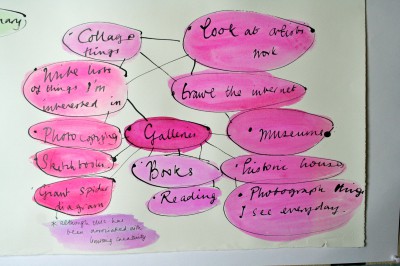 nary
Collage
things
Look at artists
work
Write lists
of things I'm
interested in
trawl the internet
Photocopying
Galleries
Museums
Sketchbook
Books
historic house
giant spider
diagram
Reading
Photograph things
I see everyday.
* although this has
been associated with